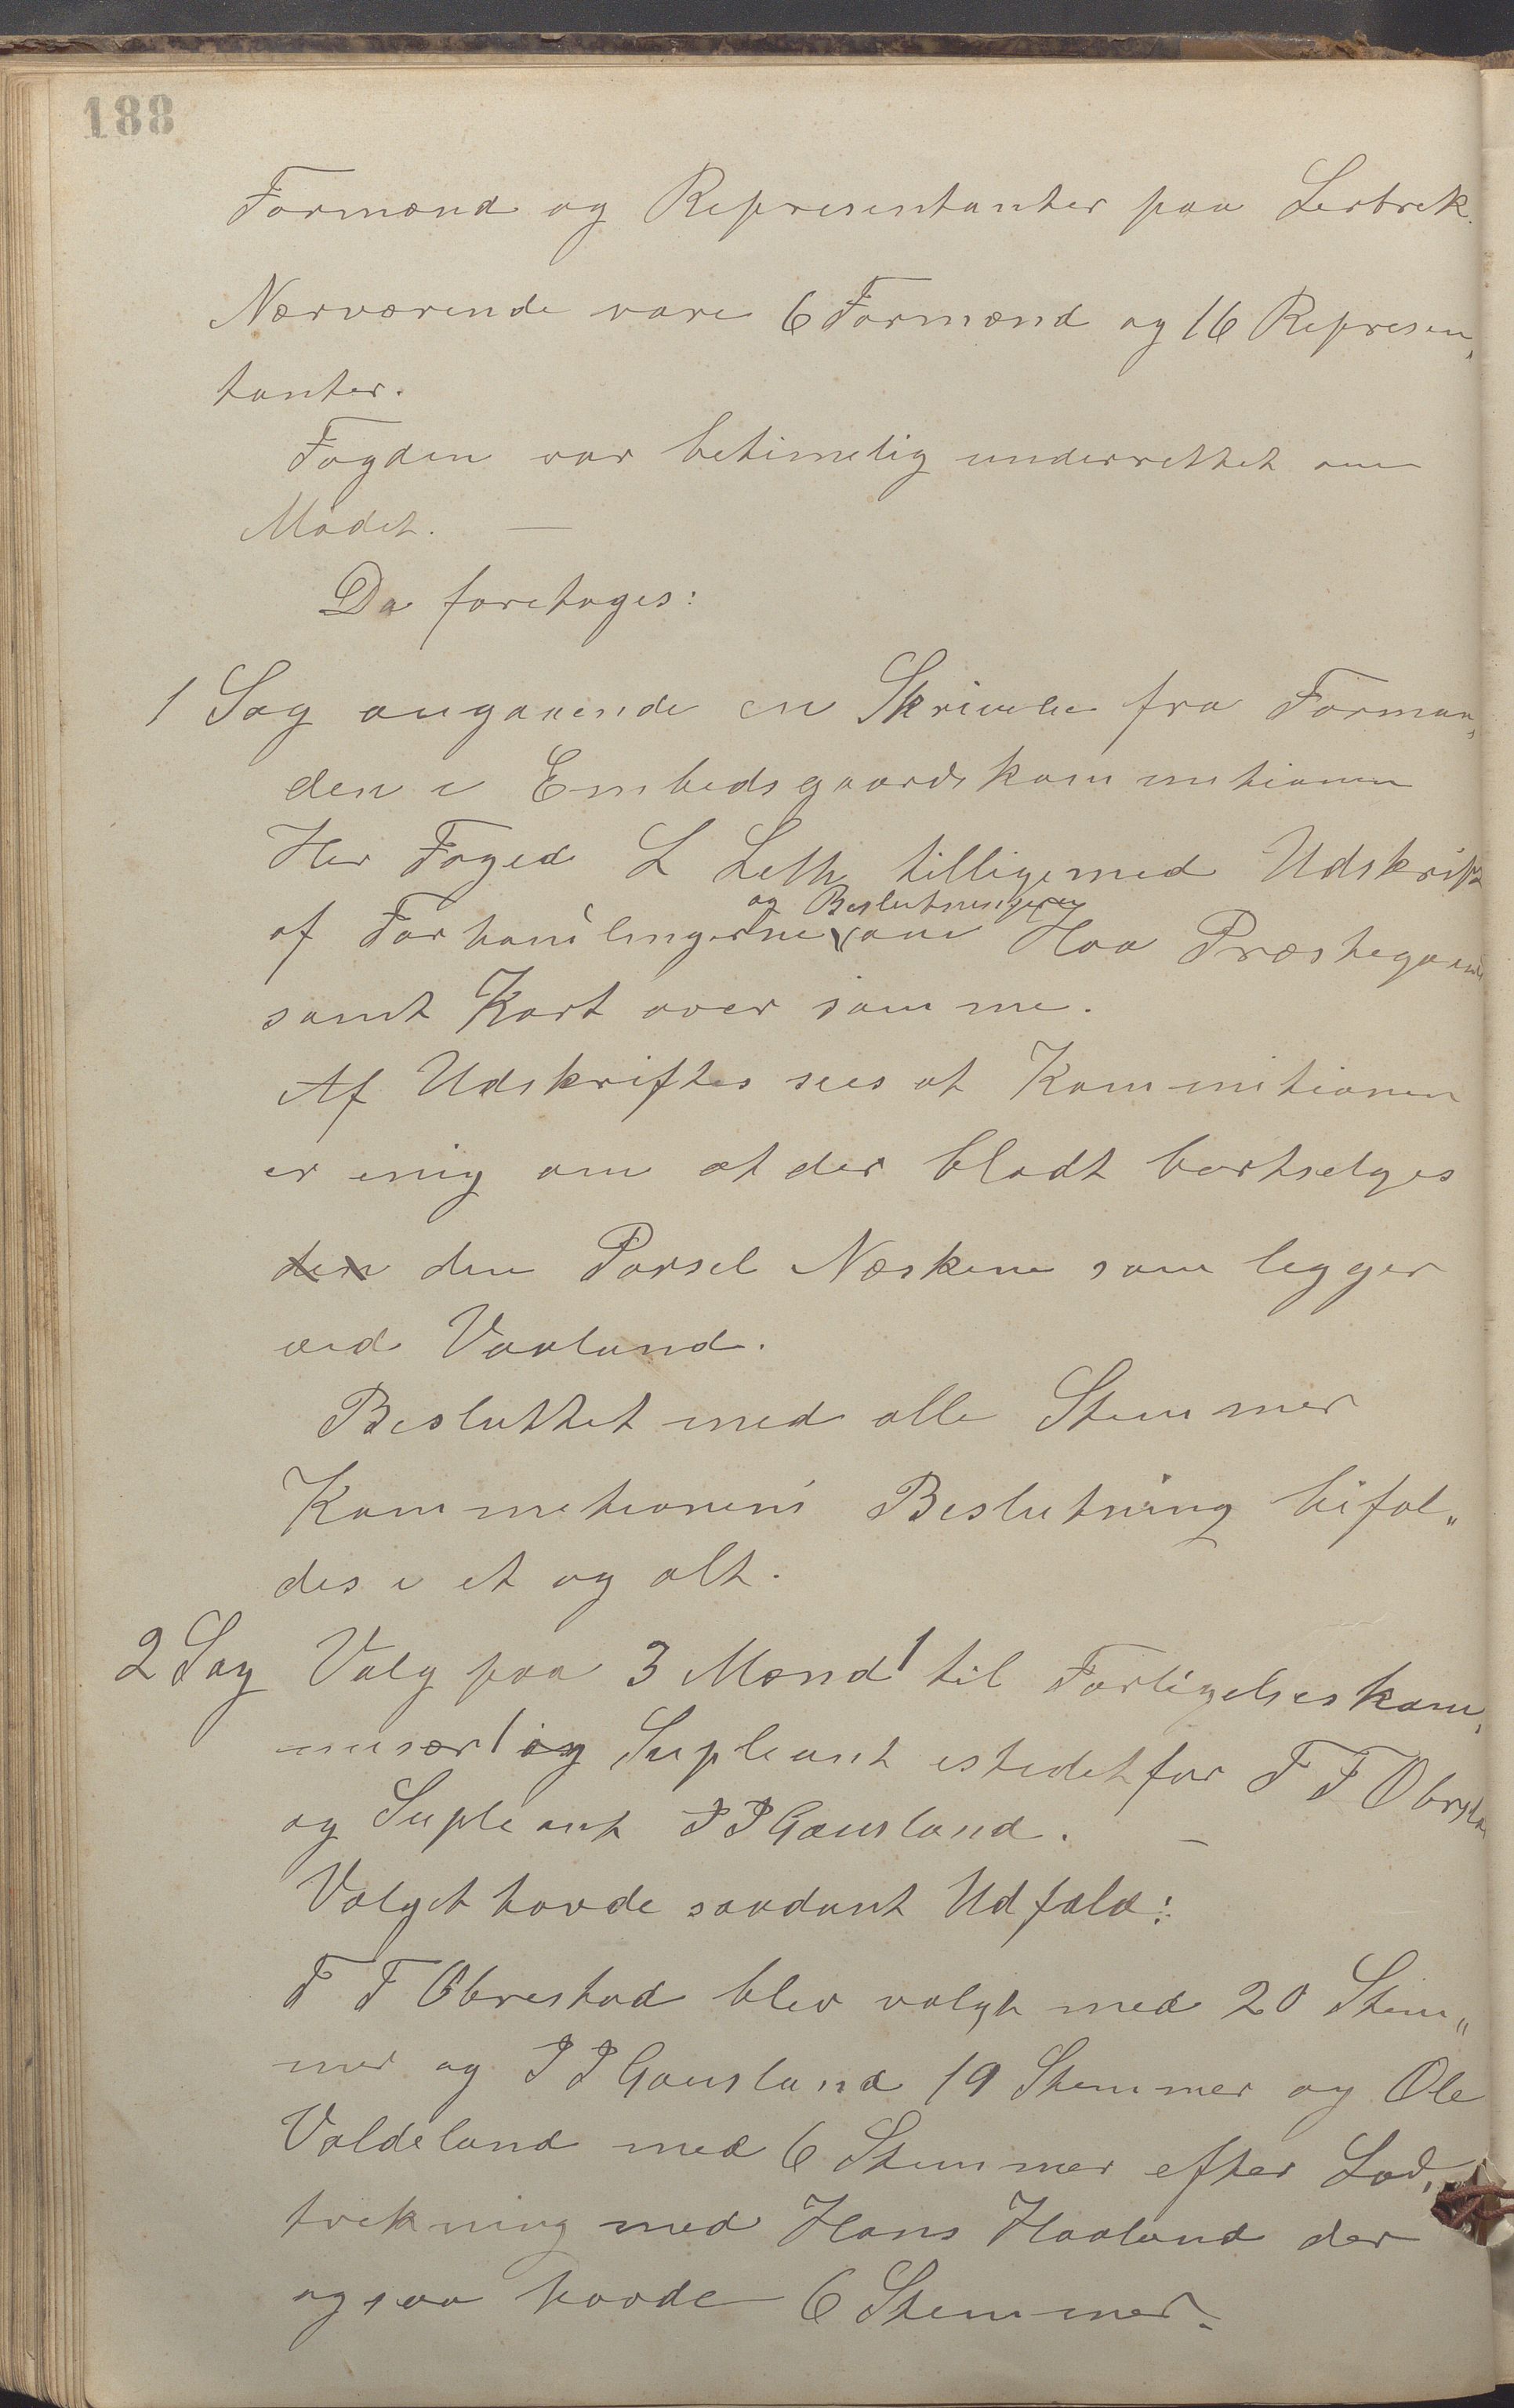 188
Formænd og Representanter paa Lerbrek.
Nærværende vare 6 Formænd og 16 Represen,
tanter.
Fogden var betimelig underrettet om
Mødet. —
Da foretoges:
1 Sag angaaende en Skrivelse fra Forman,
den i Embedsgaardskommitionen
Her Foged L Leth tilligemed Udskrift
og Beslutningeren
af Forhandlingerne om Haa Præstegaard
samt Kart over samme.
Af Udskriftes sees at Kommitionen
er enig om at der blodt bortselges
den den Parsel Næskene som legger
ved Vaaland.
Besluttet med alle Stemmer
Kommitionens Beslutning bifol„
des i et og alt.
2 Sag Valg paa 3 Mænd 1 til Forligelseskom,
misær 1 og Supleant istedetfor F F Obrestad
og Supleant J J Gausland. —
Valget havde saadant Udfald:
F F Obrestad blev valgt med 20 Stem„
mer og J J Gausland 19 Stemmer og Ole
Valdeland med 6 Stemmer efter Lod,
trekning med Hans Haaland der
ogsaa havde 6 Stemmer.